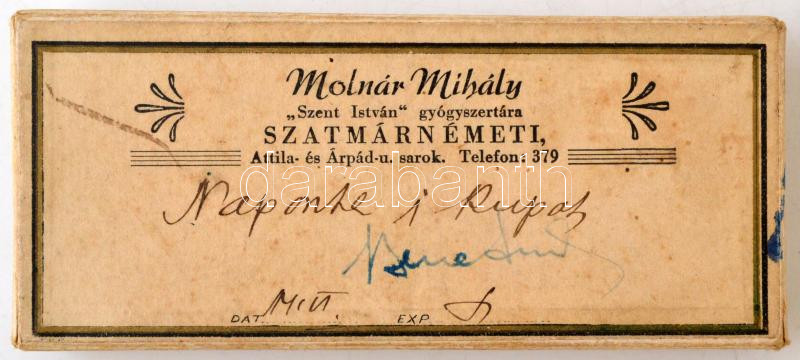 Molnár Mihály
„Szent István“ gyógyszertára
SZATMÁRNÉMETI,
Attila- és Árpád-u. sarok. Telefon: 379
darabanth
Naponta 1 kupot
DAT. EXP